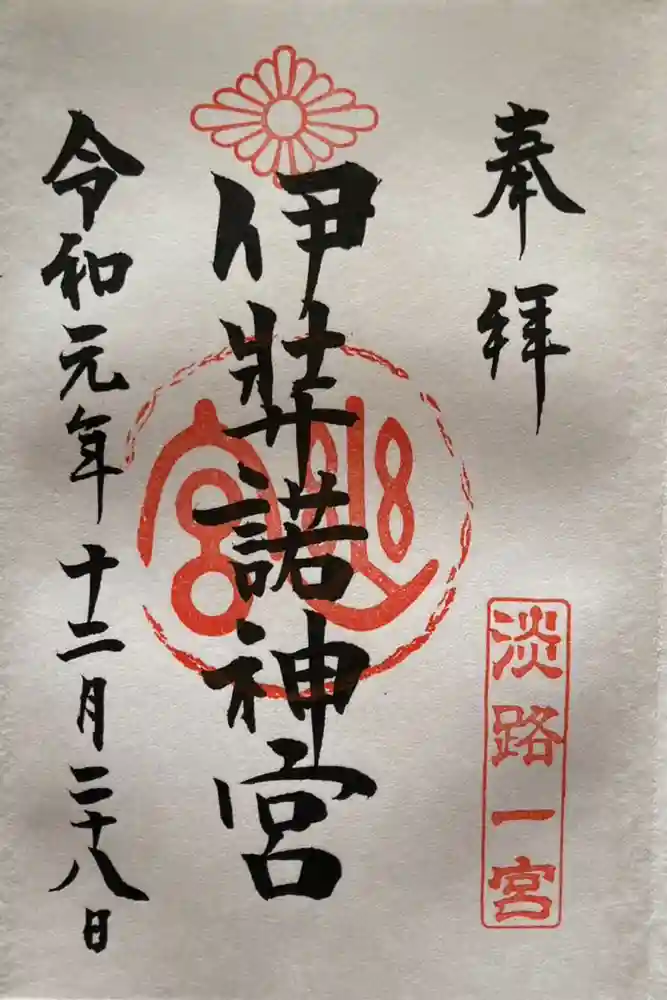 奉拝
淡路一宮
伊弉諾神宮
令和元年十二月二十八日